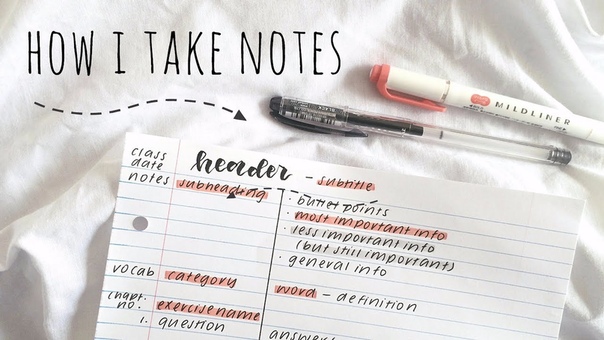 HOW I TAKE NOTES
MILDLINER
BLACK
class
date
header - subtitle
notes
subheading
· bullet points
· most important info
· less important info
(but still important)
· general info
vocab
category
word - definition
chapt.
no.
exercise name
1. question
answer